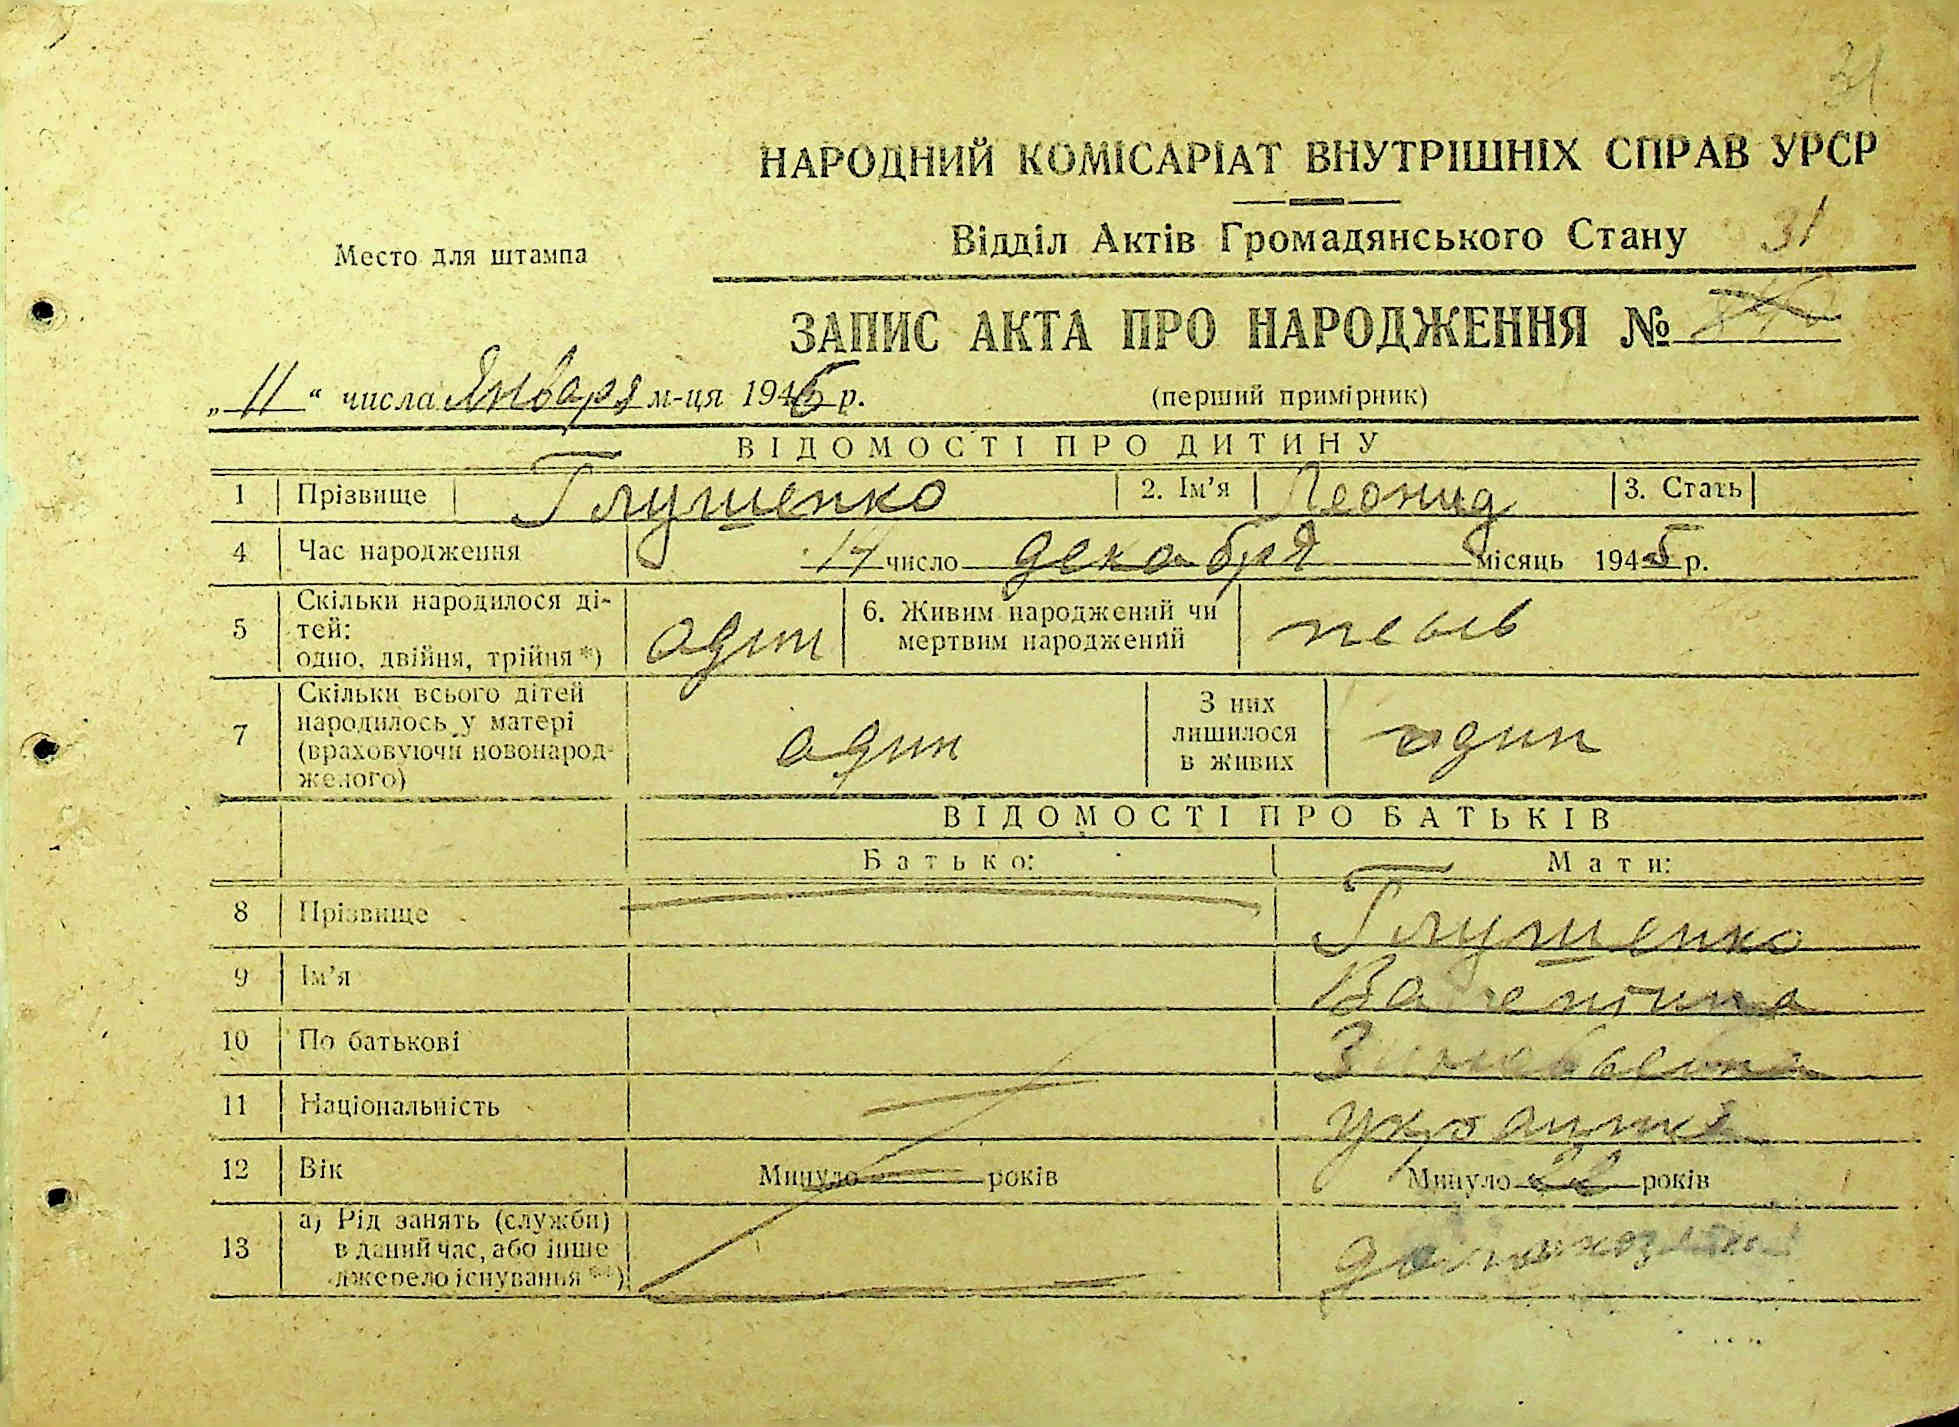 31
НАРОДНИЙ КОМІСАРІАТ ВНУТРІШНІХ СПРАВ УРСР
Місто для штампа
Відділ Актів Громадянського Стану 31
ЗАПИС АКТА ПРО НАРОДЖЕННЯ №
„11“ числа Января м-ця 1946 р.
(перший примірник)
ВІДОМОСТІ ПРО ДИТИНУ
1 Прізвище Глушенко 2. Ім'я Леонид 3. Стать
4 Час народження 14 число декабря місяць 1945 р.
5 Скільки народилося ді-
тей:
одно, двійня, трійня *) один 6. Живим народжений чи
мертвим народжений
7 Скільки всього дітей
народилось у матері
(враховуючи новонарод-
желого) один З них
лишилося
в живих один
ВІДОМОСТІ ПРО БАТЬКІВ
Батько: Мати:
8 Прізвище Глушенко
9 Ім'я Валентина
10 По батькові
11 Національність украинка
12 Вік Минуло років Минуло 22 років
13 а) Рід занять (служби)
в даний час, або інше
джерело існування **) домохозяйка